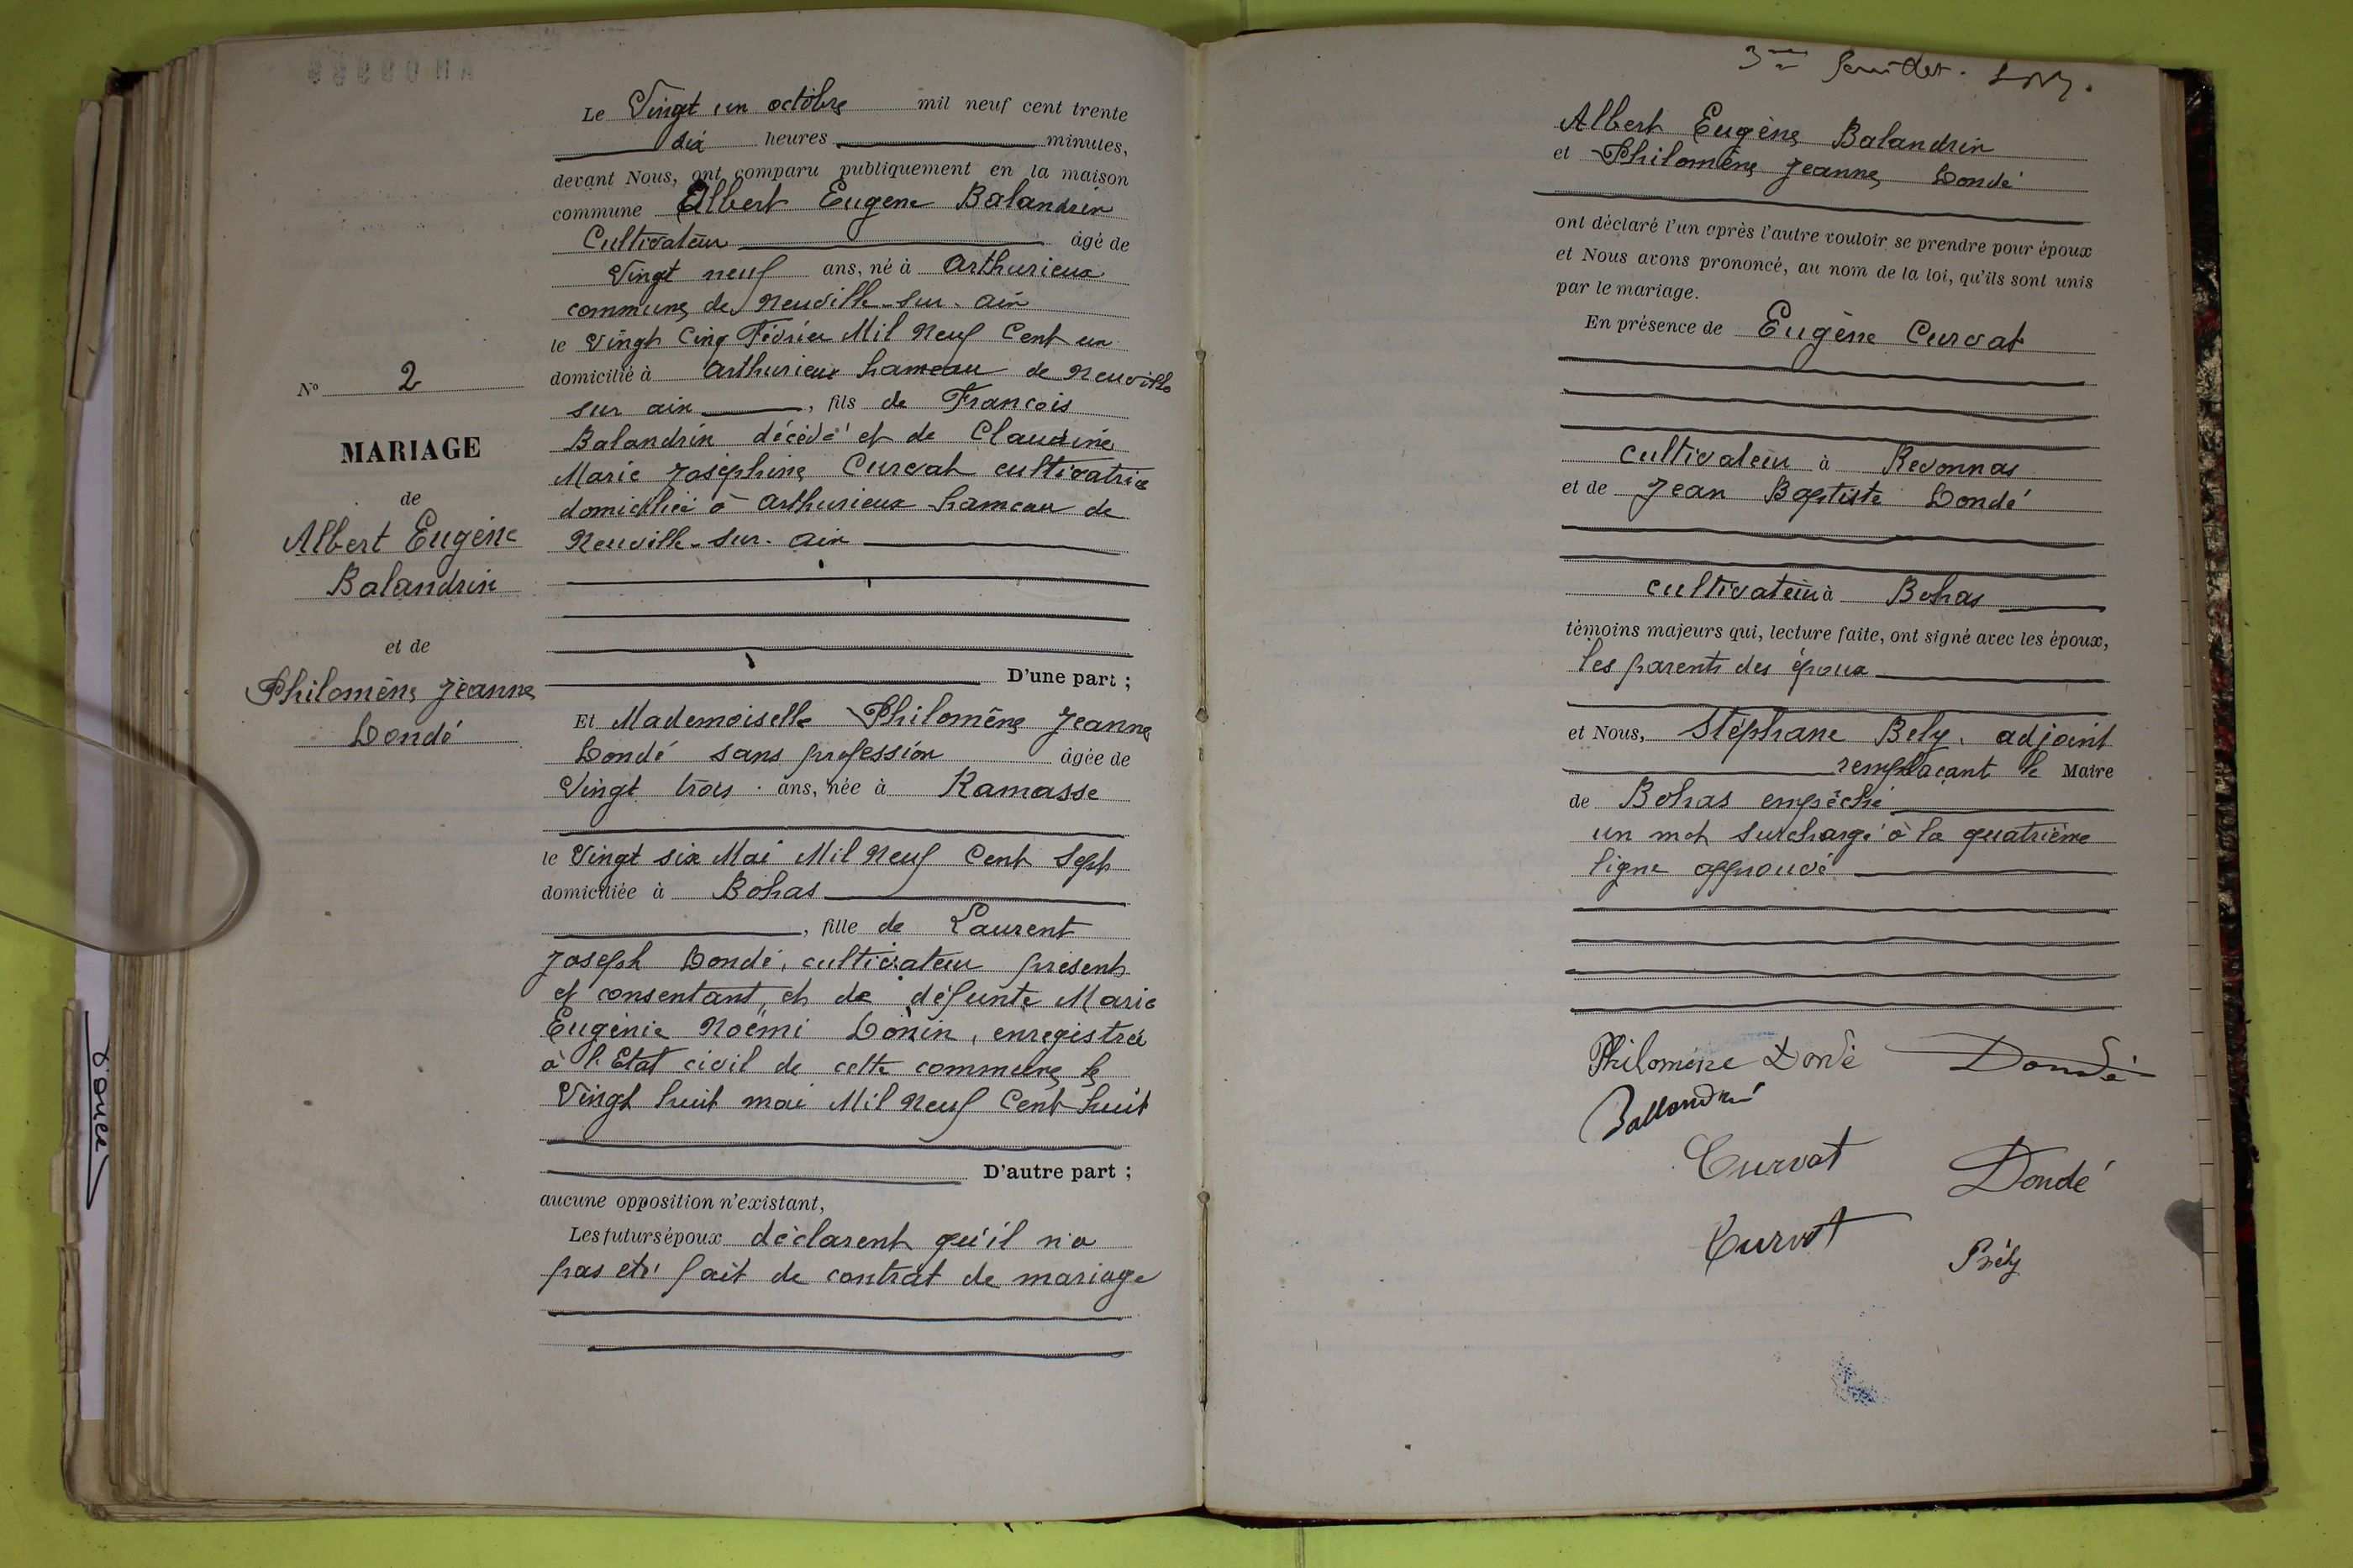 Le Vingt un octobre mil neuf cent trente
dix heures minutes,
devant Nous, ont comparu publiquement en la maison
commune Albert Eugene Balandrin
Cultivateur âgé de
Vingt neuf ans, né à Arthurieux
commune de Neuville-sur-ain
le Vingt Cinq Février Mil Neuf Cent un
domicilié à Arthurieux hameau de Neuville
sur ain, fils de François
Balandrin décédé et de Claudine
Marie Joséphine Curvat cultivatrice
domiciliée à Arthurieux hameau de
Neuville-sur-ain
D'une part ;
N° 2
MARIAGE
de
Albert Eugène
Balandrin
et de
Philomène Jeanne
Dondé
Et Mademoiselle Philomène Jeanne
Dondé sans profession âgée de
Vingt trois ans, née à Ramasse
le Vingt six Mai Mil Neuf Cent Sept
domiciliée à Bohas
, fille de Laurent
Joseph Dondé, cultivateur présent
et consentant, et de défunte Marie
Eugénie Noëmi Donin, enregistrée
à l'Etat civil de cette commune le
Vingt huit mai Mil Neuf Cent huit
D'autre part ;
aucune opposition n'existant,
Les futurs époux déclarent qu'il n'a
pas été fait de contrat de mariage
3me
Albert Eugène Balandrin
et Philomène Jeanne Dondé
ont déclaré l'un après l'autre vouloir se prendre pour époux
et Nous avons prononcé, au nom de la loi, qu'ils sont unis
par le mariage.
En présence de Eugène Curvat
cultivateur à Revonnas
et de Jean Baptiste Dondé
cultivateur à Bohas
témoins majeurs qui, lecture faite, ont signé avec les époux,
les parents des époux
et Nous, Stéphane Bely, adjoint
remplaçant le Maire
de Bohas empêché
un mot surchargé à la quatrième
ligne approuvé
Philomène Dondé Dondé
Curvat Dondé
Curvat Bély